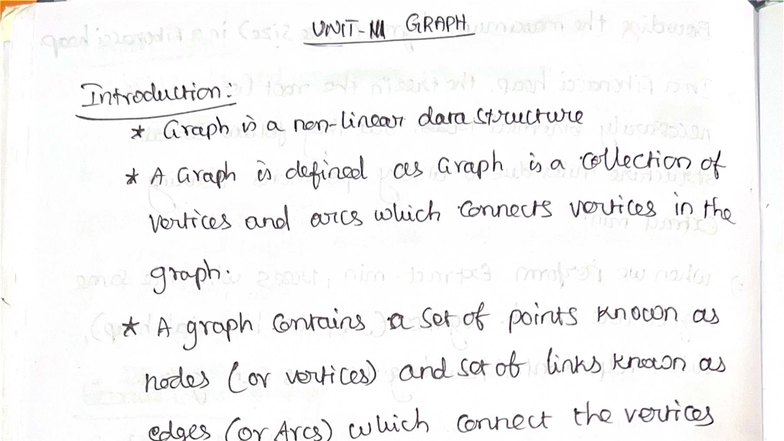 UNIT-III GRAPH
Introduction:
* Graph is a non-linear data structure
* A Graph is defined as Graph is a collection of
vertices and arcs which connects vertices in the
graph.
* A graph contains a set of points known as
nodes (or vertices) and set of links known as
edges (or Arcs) which connect the vertices